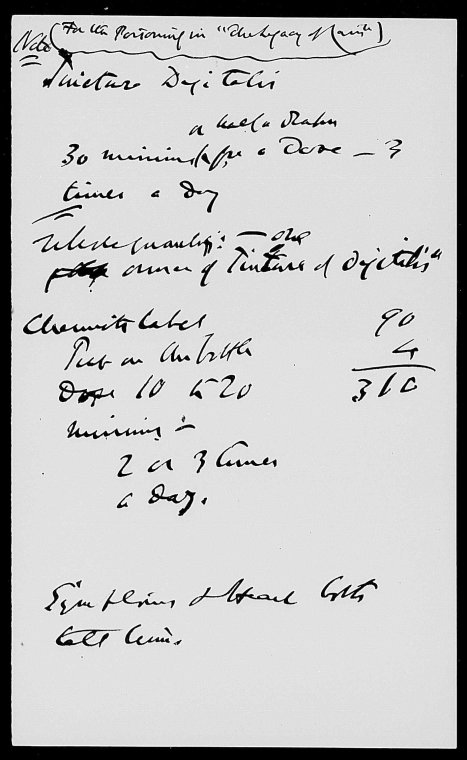 Note (For the Poisoning in "The Legacy of Cain")
Tincture Digitalis
or half a dram
30 minims for a Dose — 3
times a Day
whole quantity: — one
ounce of Tincture of Digitalis"
Chemists label
90
Put on the bottle
4
Dose 10 to 20
360
minims :—
2 or 3 times
a day.
Symptoms &